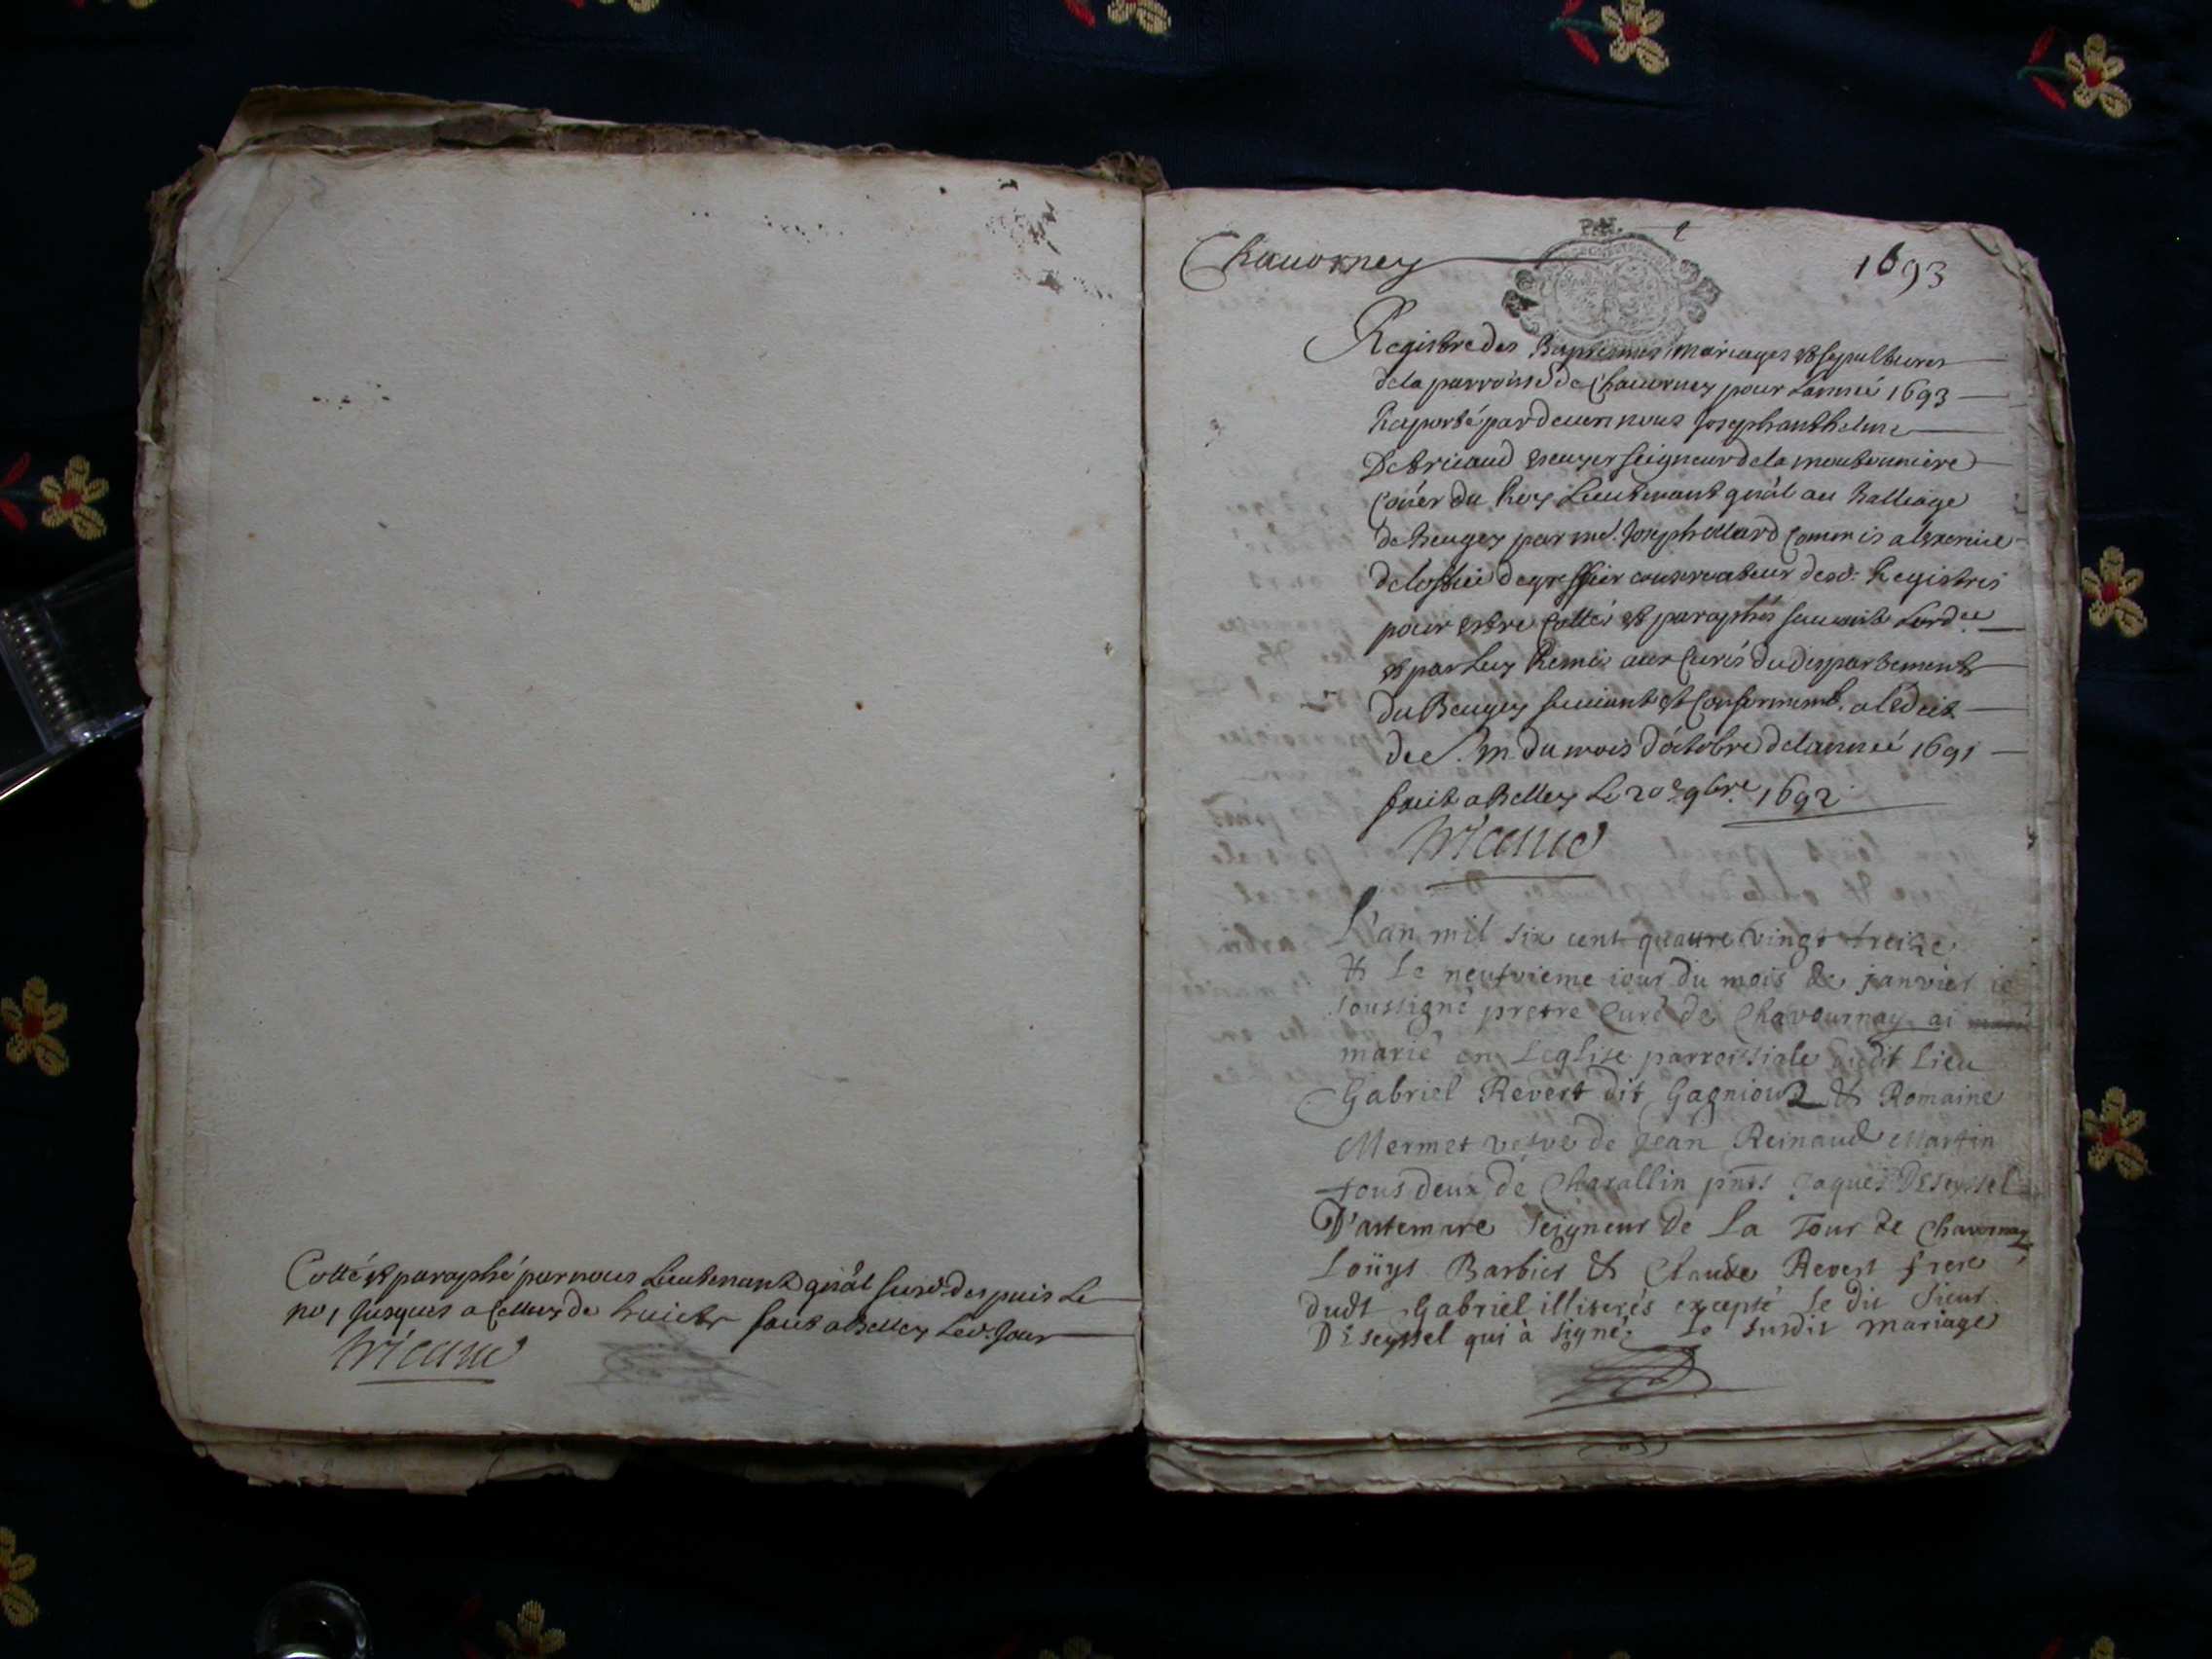 Cotté et paraphé par nous Lieutenant gnãl susd. despuis le
no 1 Jusques a Celluy de huict fait a Belley led. Jour
Tricaud
Chauorney
1693
Registre des Baptesmes mariages et sepultures
de la parroisse de Chauorney pour Lannée 1693
Raporté pardeuen nous Joseph anthelme
De tricaud escuyer seigneur de la moutonniere
Coner du Roy Lieutenant gnãl au Balliage
de beugey par me. Joseph Commis a lexercice
de loffice de greffier conservateur desd. Registres
pour estre Cottés et paraphés suiuant Lordce
et par Luy Remis aux Curés du despartement
du Beugey suiuant et Conformemt. a lEdict
de S. m. du mois doctobre de lannée 1691
fait a Belley Le 20e 9bre. 1692
Tricaud
L'an mil six cent quatre vingt treize
et le neufvieme iour du mois de janvier ie
soussigné pretre Curé de Chavournay ai
marié en Leglise parroissiale dudit Lieu
Gabriel Revert dit Gagnioud et Romaine
Mermet vefve de Jean Reinaud Martin
tous deux de Charallin pnts Jaques DEseyssel
D'artemare seigneur de La Tour de Chavornay
Loüys Barbier et Claude Revert frere
dudt Gabriel illiterés excepté le dit Sieur
DEseyssel qui à signé. Le susdit mariage